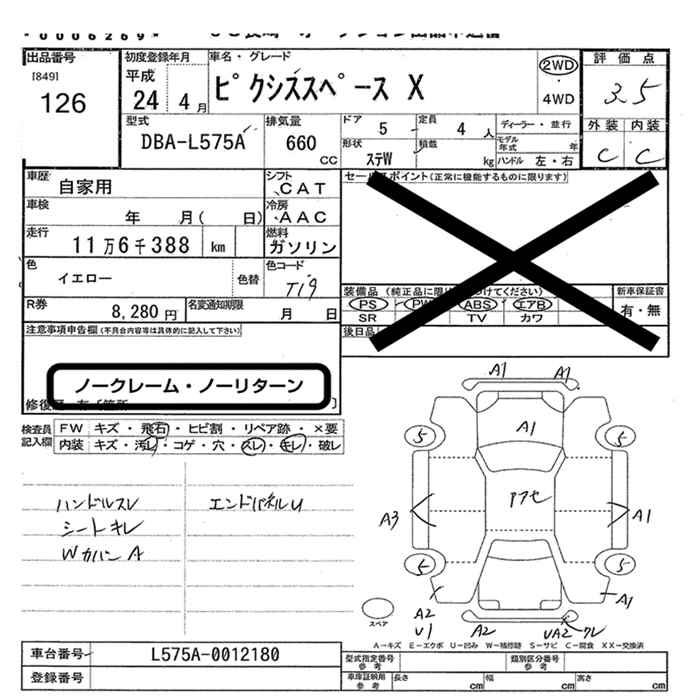 *0006269*
出品番号
[849]
126
初度登録年月
平成
24 4月
車名・グレード
ピクシススペース X
2WD
・
4WD
評価点
3.5
外装 内装
C C
型式
DBA-L575A
排気量
660
CC
ドア 5
定員 4 人
形状
ステW
積載
kg
ディーラー・並行
モデル年式 年
ハンドル 左・右
車歴
自家用
シフト
CAT
車検
年 月( 日)
冷房
AAC
走行
11万6千388 km
燃料
ガソリン
色
イエロー
色替
色コード
T19
R券
8,280円
名変通知期限
月 日
セールスポイント(正常に機能するものに限ります)
PS PW ABS エアB
SR TV カワ
新車保証書
有・無
注意事項申告欄(不具合内容等は具体的に記入して下さい)
ノークレーム・ノーリターン
検査員
記入欄
FW キズ・飛石・ヒビ割・リペア跡・×要
内装 キズ・汚レ・コゲ・穴・スレ・キレ・破レ
ハンドルスレ
シートキレ
Wカバー A
エンドパネルU
A1 A1
A1
5 5
アクセ
A3 A1
5 5
A2
U1
A2
UA2
A1
スペア
A－キズ E－エクボ U－凹み W－補修跡 S－サビ C－腐食 XX－交換済
車台番号
L575A-0012180
登録番号
型式指定番号
参考
類別区分番号
参考
車庫証明用
参考
長さ cm
幅 cm
高さ cm